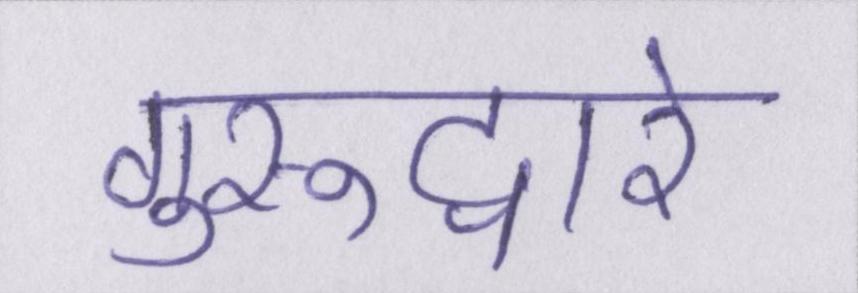 गुरूद्वारे